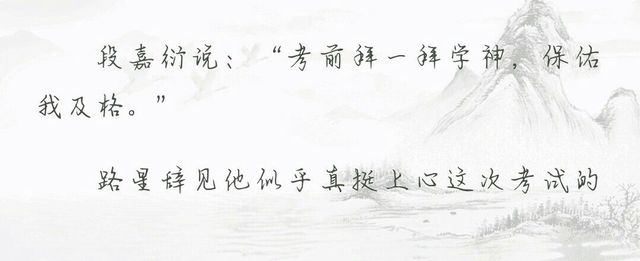 段嘉衍说：“考前拜一拜学神，保佑
我及格。”
路星辞见他似乎真挺上心这次考试的